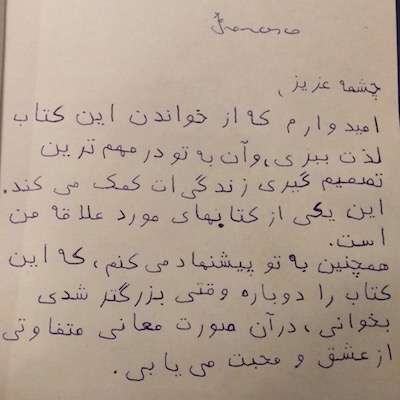 چشمه عزیز،
امیدوارم که از خواندن این کتاب
لذت ببری، و آن به تو در مهم ترین
تصمیم گیری زندگی ات کمک می کند.
این یکی از کتابهای مورد علاقه من
است.
همچنین به تو پیشنهاد می کنم، که این
کتاب را دوباره وقتی بزرگتر شدی
بخوانی، در آن صورت معانی متفاوتی
از عشق و محبت می یابی.